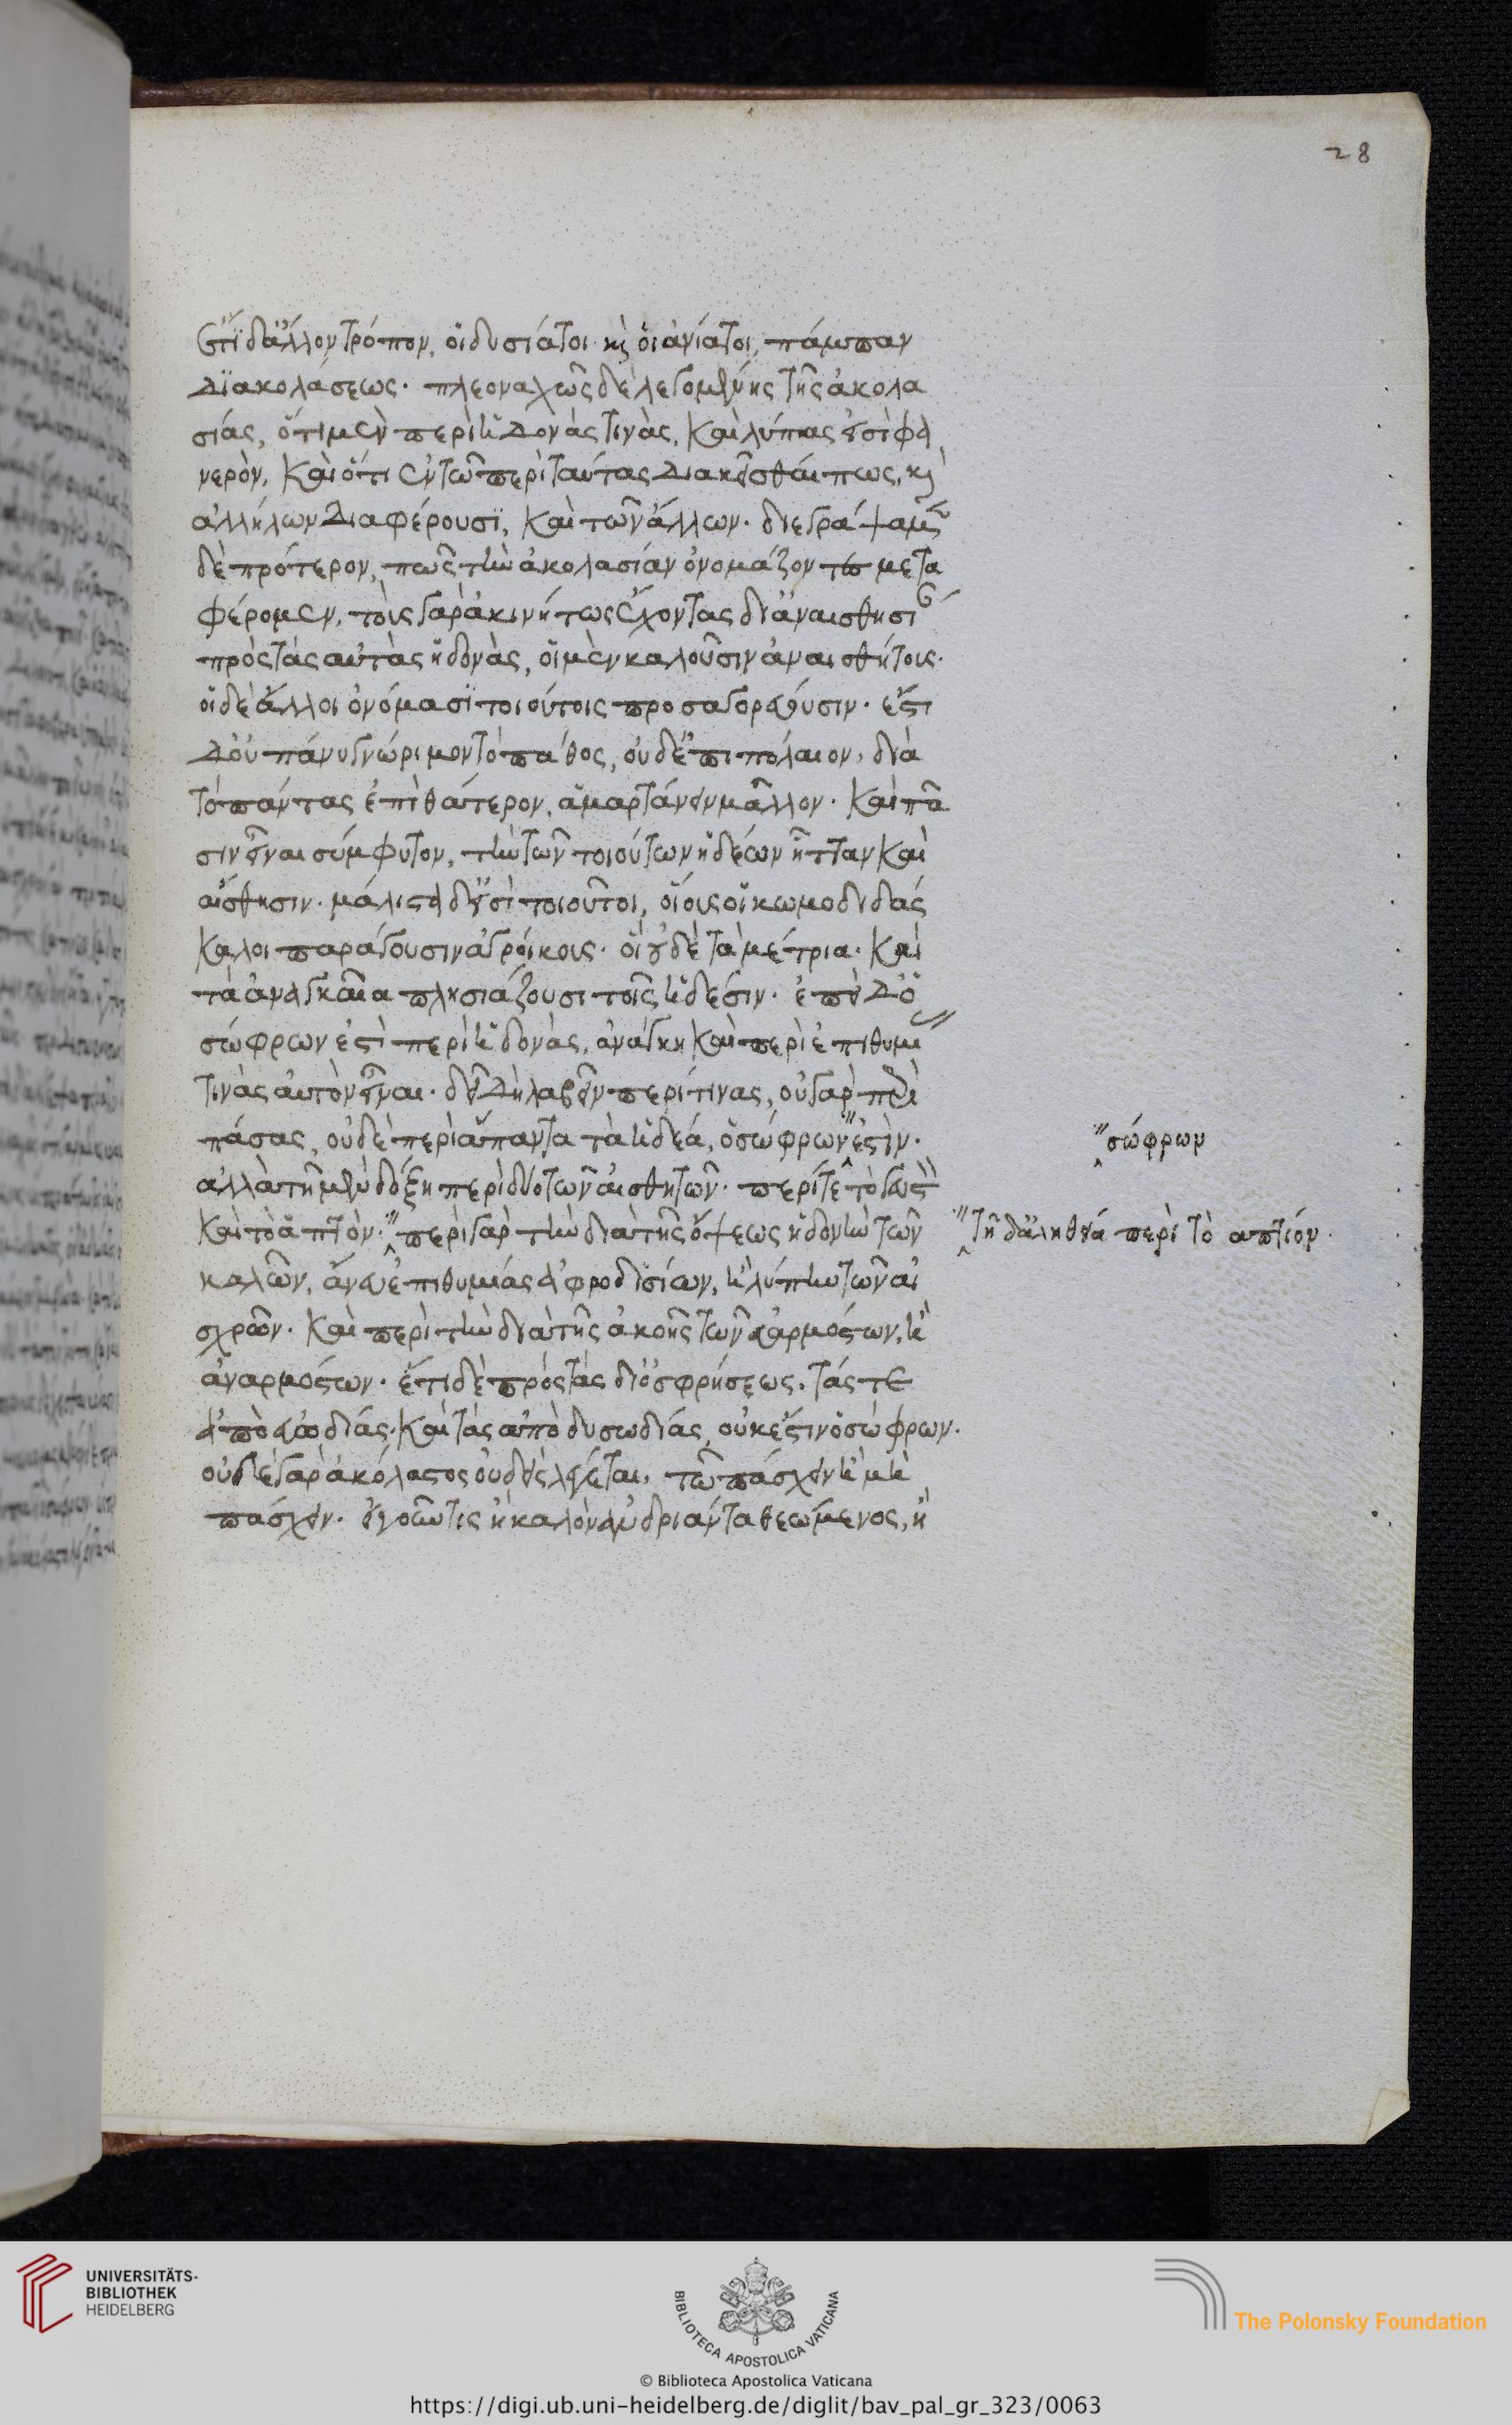 28
ἐπεὶ δ' ἄλλον τρόπον, οἱ δυσίατοι καὶ οἱ ἀνίατοι, πάμπαν
διακολάσεως. πλεοναχῶς δὲ λεγομένης τῆς ἀκολα
σίας, ὅτι μὲν περὶ ἡδονάς τινας, καὶ λύπας εἰσὶ φα
νερὸν, καὶ ὅτι ἐν τῶ περὶ ταύτας διακεῖσθαι πως, καὶ
ἀλλήλων διαφέρουσι, καὶ τῶν ἄλλων. διεγράψαμεν
δὲ πρότερον, πῶς τὴν ἀκολασίαν ὀνομάζοντες μετα
φέρομεν, τοὺς γὰρ ἀκινήτως ἔχοντας δι' ἀναισθησίαν
πρὸς τὰς αὐτὰς ἡδονὰς, οἱ μὲν καλοῦσιν ἀναισθήτους.
οἱ δὲ ἄλλοι ὀνόμασι τοιούτοις προσαγορεύουσιν. ἔστι
δ' οὐ πάνυ γνώριμον τὸ πάθος, οὐδ' ἐπιπόλαιον, διὰ
τὸ πάντας ἐπὶ θάτερον, ἁμαρτάνειν μᾶλλον. καὶ πᾶ
σιν εἶναι σύμφυτον, τὴν τῶν τοιούτων ἡδέων ἧτταν καὶ
αἴσθησιν. μάλιστα δ' εἰσὶ τοιοῦτοι, οἵους οἱ κωμοδιδάς
καλοι παράγουσιν ἀγροίκους. οἳ οὐδὲ τὰ μέτρια. καὶ
τὰ ἀναγκαῖα πλησιάζουσι τοῖς ἡδέσιν. ἐπεὶ δ' ὁ
σώφρων ἐστὶ περὶ ἡδονάς, ἀνάγκη καὶ περὶ ἐπιθυμίας
τινὰς αὐτὸν εἶναι. δεῖ δὴ λαβεῖν περὶ τίνας, οὐ γὰρ περὶ
πάσας, οὐδὲ περὶ ἅπαντα τὰ ἡδέα, ὁ σώφρων ἐστὶν.
σώφρων
ἀλλὰ τῆ μὲν δόξη περὶ δύο τῶν αἰσθητῶν. περί τε τὸ γευστὸν
καὶ τὸ ἁπτὸν. περὶ γὰρ τὴν διὰ τῆς ὄψεως ἡδονὴν τῶν
τῆ δ' ἀληθεία περὶ τὸ απτιόν.
καλῶν, ἄνευ ἐπιθυμίας ἀφροδισίων, ἢ λύπην τῶν αἰ
σχρῶν. καὶ περὶ τὴν διὰ τῆς ἀκοῆς τῶν εὐαρμόστων, ἢ
ἀναρμόστων. ἔτι δὲ πρὸς τὰς δι' ὀσφρήσεως, τάς τε
ἀπὸ εὐωδίας. καὶ τὰς ἀπὸ δυσωδίας, οὐκ ἔστιν ὁ σώφρων.
οὐδὲ γὰρ ἀκόλαστος οὐδεὶς λέγεται, τῶ πάσχειν ἢ μὴ
πάσχειν. εἰ γοῦν τις ἢ καλὸν ἀνδριάντα θεώμενος, ἢ
UNIVERSITÄTS-
BIBLIOTHEK
HEIDELBERG
BIBLIOTECA APOSTOLICA VATICANA
The Polonsky Foundation
© Biblioteca Apostolica Vaticana
https://digi.ub.uni-heidelberg.de/diglit/bav_pal_gr_323/0063